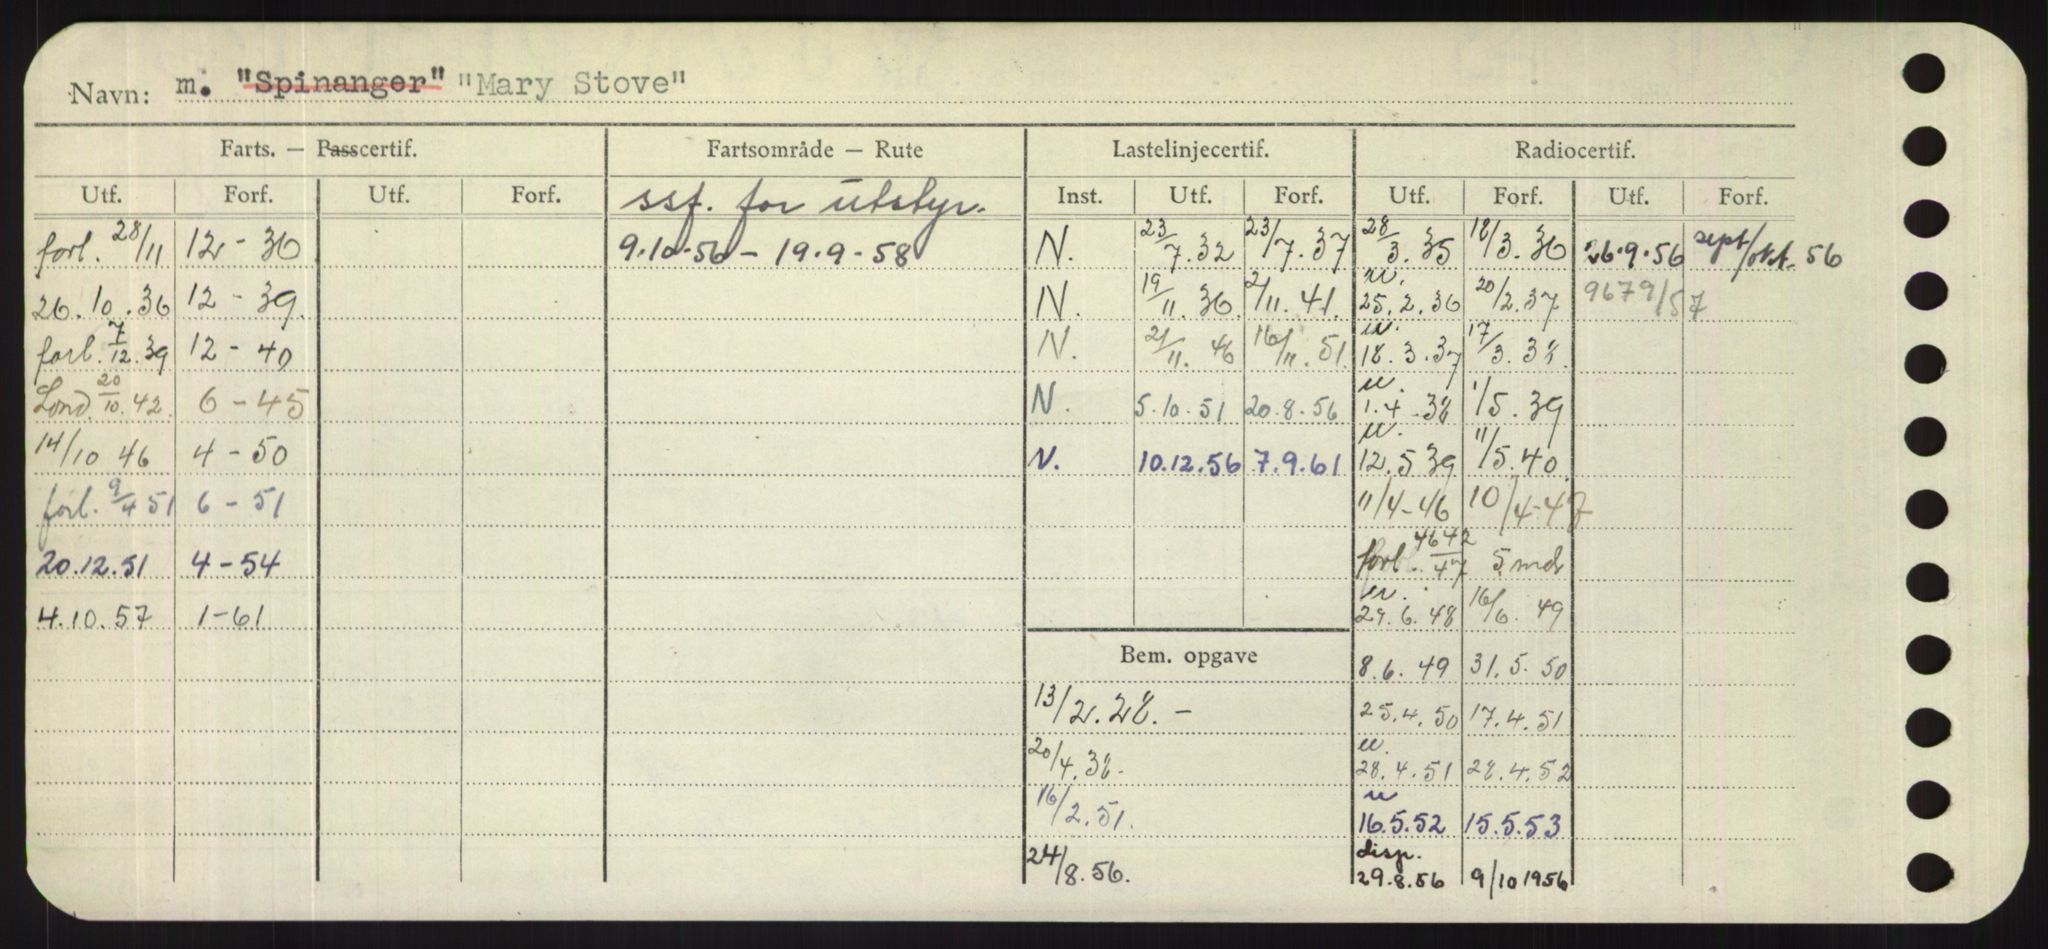 Navn: m. "Spinanger" "Mary Stove"
Farts. — Passcertif. Fartsområde — Rute Lastelinjecertif. Radiocertif.
Utf. Forf. Utf. Forf. ssf. for utstyr. Inst. Utf. Forf. Utf. Forf. Utf. Forf.
forl. 28/11 12 - 36 9.10.56 - 19.9.58 N. 23/7.32 23/7.37 28/3.35 18/3.36 26.9.56 sept/okt. 56
26.10.36 12 - 39 N. 19/11.36 2/11.41 u. 25.2.36 20/2.37 9679/57
forl. 7/12.39 12 - 40 N. 21/11.46 16/11.51 u. 18.3.37 17/3.38
Lond. 20/10.42 6 - 45 N. 5.10.51 20.8.56 u. 1.4.38 1/5.39
14/10 46 4 - 50 N. 10.12.56 7.9.61 u. 12.5.39 11/5.40
forl. 9/4 51 6 - 51 11/4-46 10/4-47
20.12.51 4 - 54 forl. 4642/47 5 mdr
4.10.57 1-61 u. 29.6.48 16/6.49
Bem. opgave 8.6.49 31.5.50
13/2.28. - 25.4.50 17.4.51
20/4.38. u. 28.4.51 28.4.52
16/2.51. u 16.5.52 15.5.53
24/8.56. disp. 29.8.56 9/10 1956